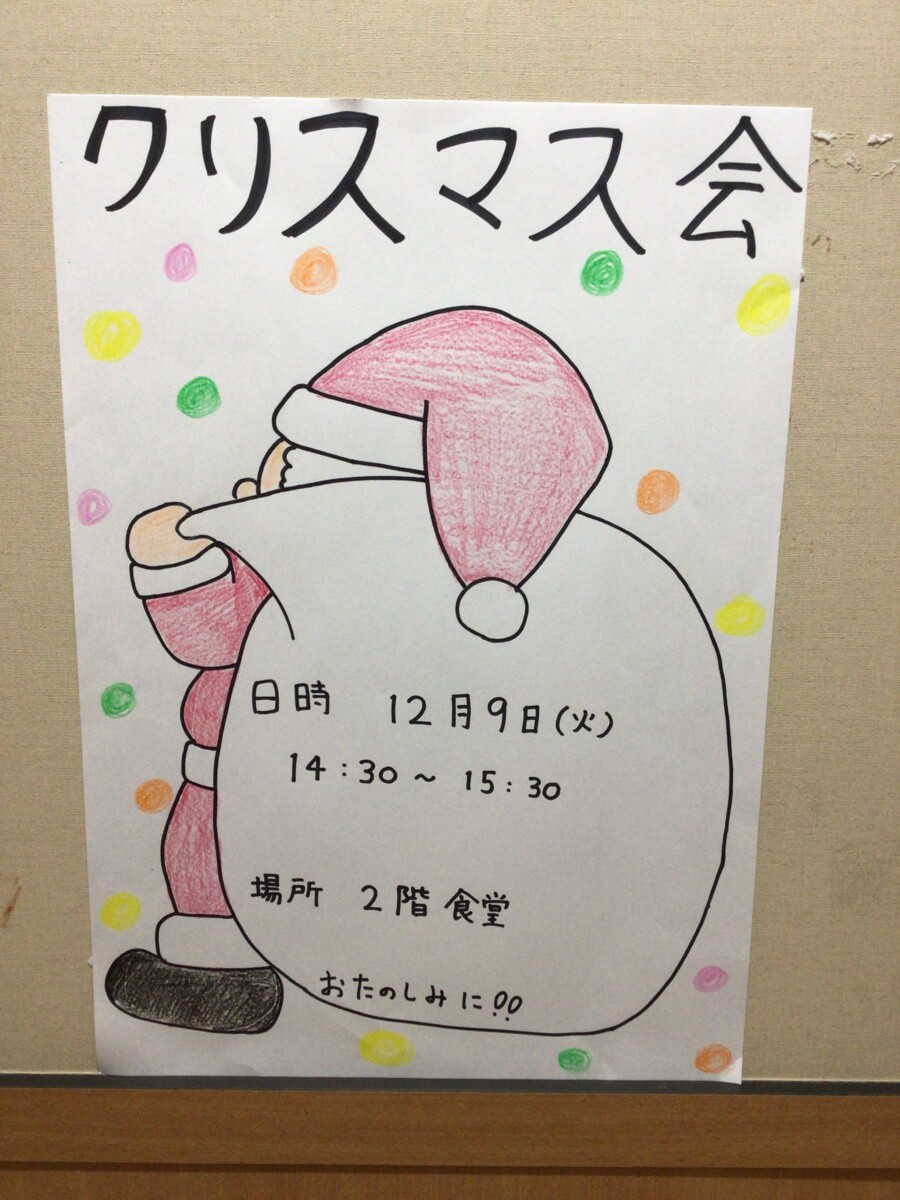 クリスマス会
日時 12月9日(火)
14:30～15:30
場所 2階食堂
おたのしみに!!